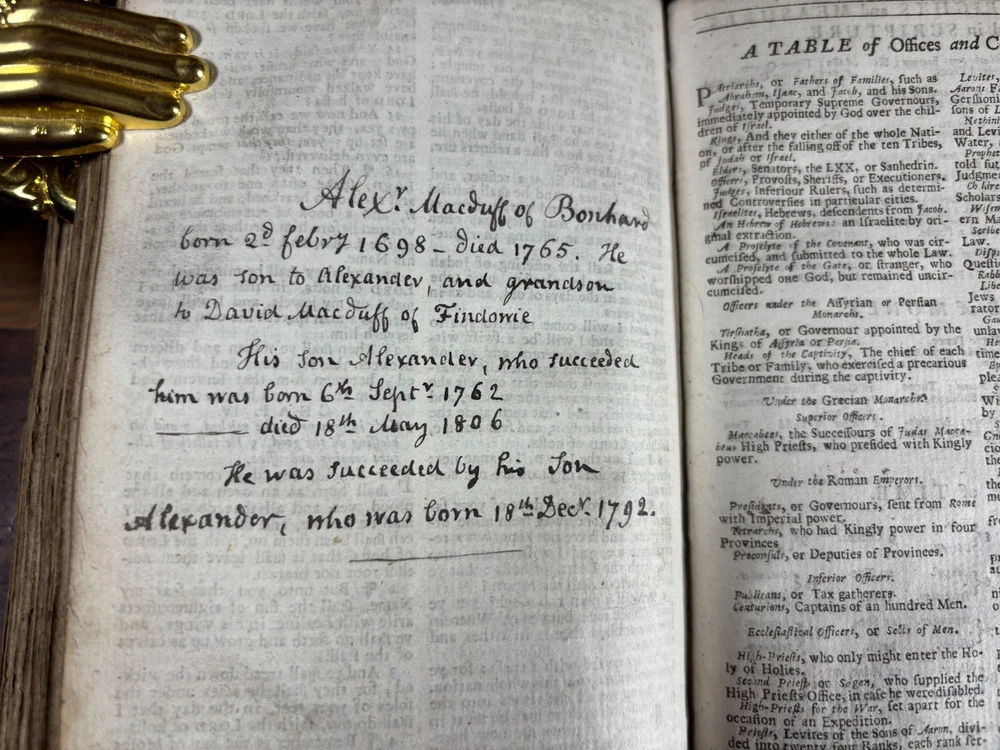 Alexr. Macduff of Bonhard
born 2d febry 1698 – died 1765. He
was son to Alexander, and grandson
to David Macduff of Findowie
His son Alexander, who succeeded
him was born 6th Septr 1762
——— died 18th May 1806
He was succeeded by his Son
Alexander, who was born 18th Decr. 1792.
A TABLE of Offices and C
PAtriarchs, or Fathers of Families, such as
Abraham, Isaac, and Jacob, and his Sons.
Judges, Temporary Supreme Governours,
immediately appointed by God over the chil-
dren of Israel.
Kings, And they either of the whole Nati-
on, or after the falling off of the ten Tribes,
of Judah or Israel.
Elders, Senators, the LXX, or Sanhedrin.
Officers, Provosts, Sheriffs, or Executioners.
Judges, Inferiour Rulers, such as determi-
ned Controversies in particular cities.
Israelites, Hebrews, descendents from Jacob.
An Hebrew of Hebrews: an Israelite by ori-
ginal extraction.
A Proselyte of the Covenant, who was cir-
cumcised, and submitted to the whole Law.
A Proselyte of the Gate, or stranger, who
worshipped one God, but remained uncir-
cumcised.
Officers under the Assyrian or Persian
Monarchs.
Tirshatha, or Governour appointed by the
Kings of Assyria or Persia.
Heads of the Captivity, The chief of each
Tribe or Family, who exercised a precarious
Government during the captivity.
Under the Grecian Monarchs.
Superior Officers.
Maccabees, the Successours of Judas Macca-
beus High Priests, who presided with Kingly
power.
Under the Roman Emperors.
Presidents, or Governours, sent from Rome
with Imperial power.
Tetrarchs, who had Kingly power in four
Provinces
Proconsuls, or Deputies of Provinces.
Inferior Officers.
Publicans, or Tax gatherers.
Centurions, Captains of an hundred Men.
Ecclesiastical Officers, or Sects of Men.
High-Priests, who only might enter the Ho-
ly of Holies.
Second Priest, or Sagan, who supplied the
High Priests Office, in case he were disabled.
High-Priests for the War, set apart for the
occasion of an Expedition.
Priests, Levites of the Sons of Aaron, divi-
ded into twenty four Ranks, each rank ser-
Levites,
Aarons Fa
Gershoni
sons of L
Nethini
and Levi
Water, a
Prophet
told fut
Judgme
Scholars
Wisem
ern Ma
Scribe
Law.
Disp
Questi
Rabb
Jews
rator